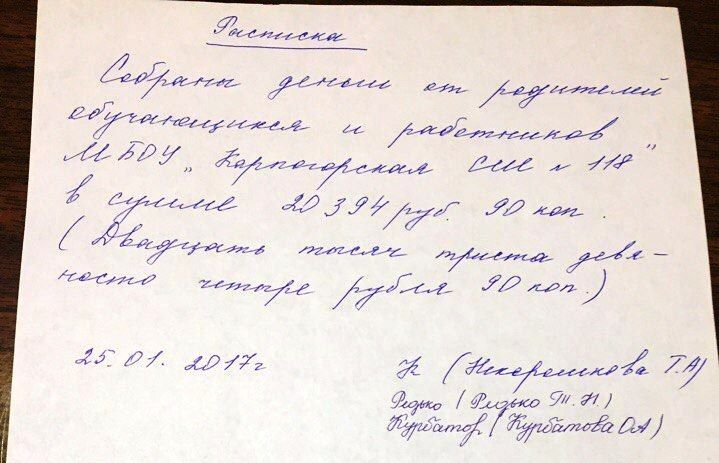 Расписка
Собраны деньги от родителей
обучающихся и работников
МБОУ „Карпогорская СШ № 118"
в сумме 20 394 руб. 90 коп.
(Двадцать тысяч триста девя-
носто четыре рубля 90 коп.)
25.01. 2017г
Т.А)
Редько (Редько Т.Н.)
Курбатов (Курбатова О.А)